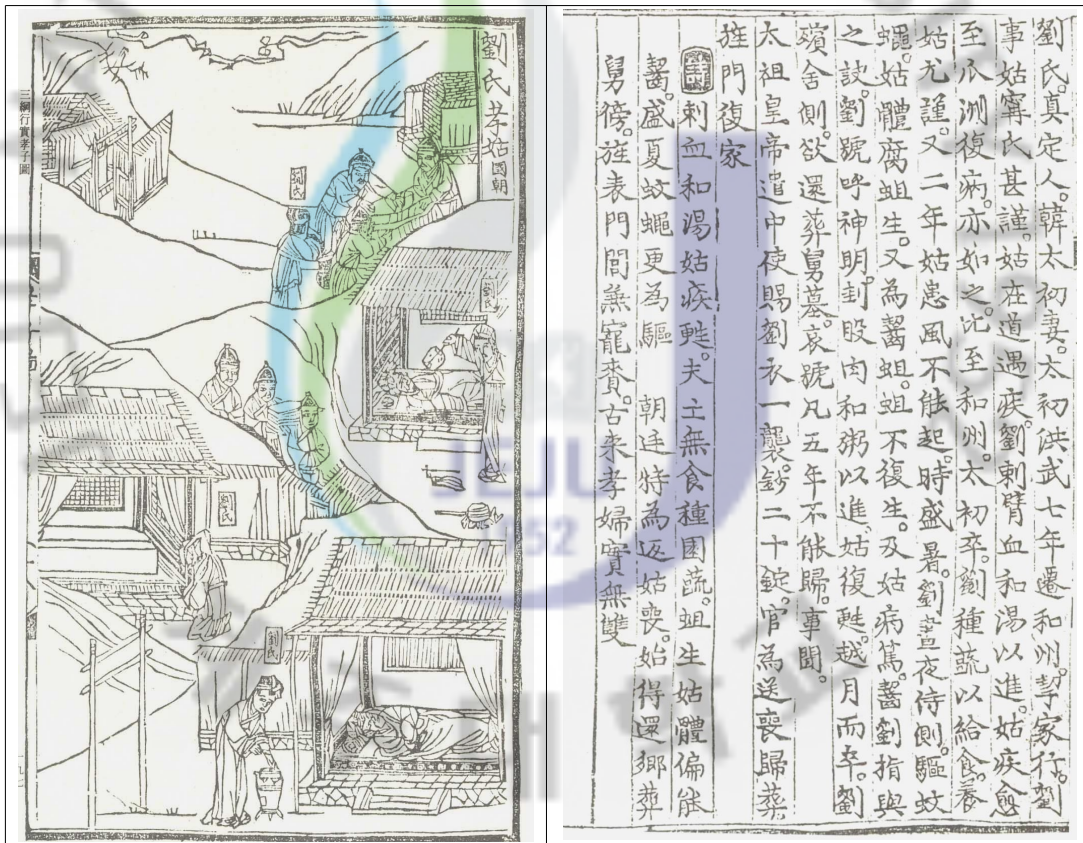 劉氏孝姑 國朝
三綱行實孝子圖
劉氏
劉氏
劉氏
劉氏
劉氏。真定人。韓太初妻。太初洪武七年遷和州。挈家行。劉
事姑寗氏甚謹。姑在道遇疾。劉刺臂血和湯以進。姑疾愈
至瓜洲復病。亦如之。比至和州。太初卒。劉種蔬以給食。養
姑尤謹。又二年姑患風不能起。時盛暑。劉晝夜侍側。驅蚊
蠅。姑體腐蛆生。又為齧蛆。蛆不復生。及姑病篤。齧劉指與
之訣。劉號呼神明。刲股肉和粥以進。姑復甦。越月而卒。劉
殯舍側。欲還葬舅墓。哀號凡五年不能歸。事聞。
太祖皇帝遣中使賜劉衣一襲。鈔二十錠。官為送喪歸葬。
旌門復家
詩 刺血和湯姑疾甦。夫亡無食種園蔬。蛆生姑體偏能
齧。盛夏蚊蠅更為驅 朝廷特為返姑喪。始得還鄉葬
舅傍。旌表門閭兼寵賚。古來孝婦實無雙
JEJU
1952